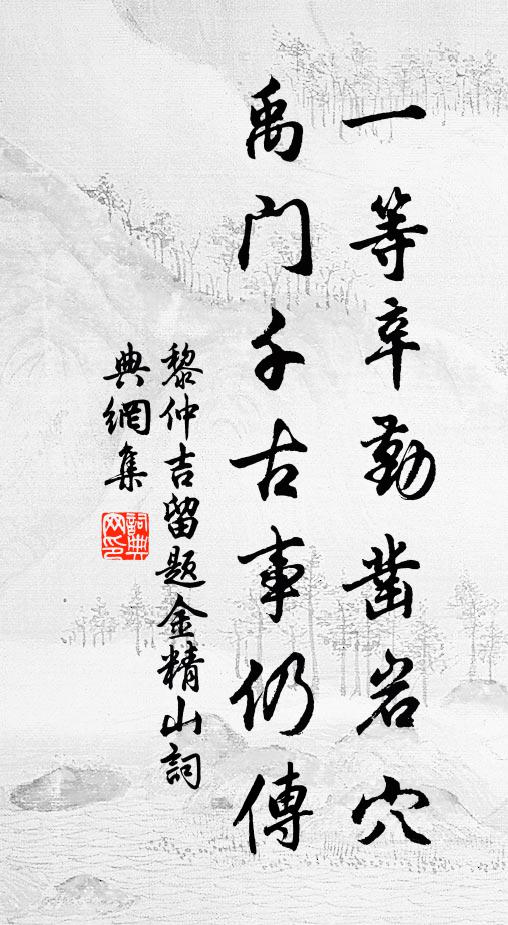 一等辛勤凿岩穴
禹门千古事仍傳
黎仲吉留题金精山詞
典網集
詞典
网印